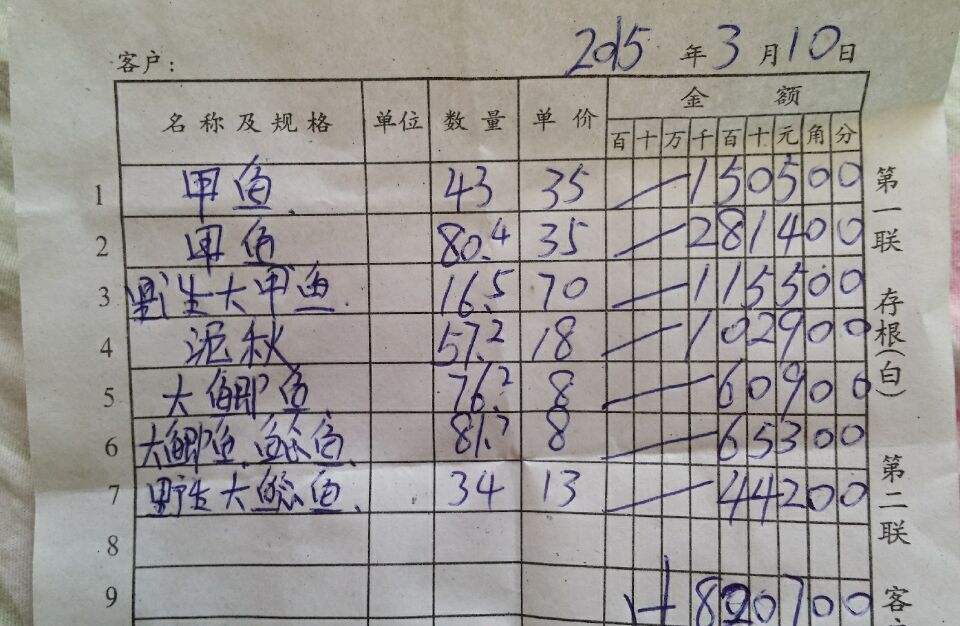 2015 年 3 月 10 日
客户:
名称及规格 单位 数量 单价 金额
百 十 万 千 百 十 元 角 分
1 甲鱼. 43 35 150500
2 甲鱼 80.4 35 281400
3 野生大甲鱼. 16.5 70 115500
4 泥秋 57.2 18 102900
5 大鲫鱼. 76.2 8 60900
6 大鲫鱼. 鱼 81.7 8 65300
7 野生大 鱼. 34 13 44200
8
9 820700
第一联 存根(白) 第二联 客